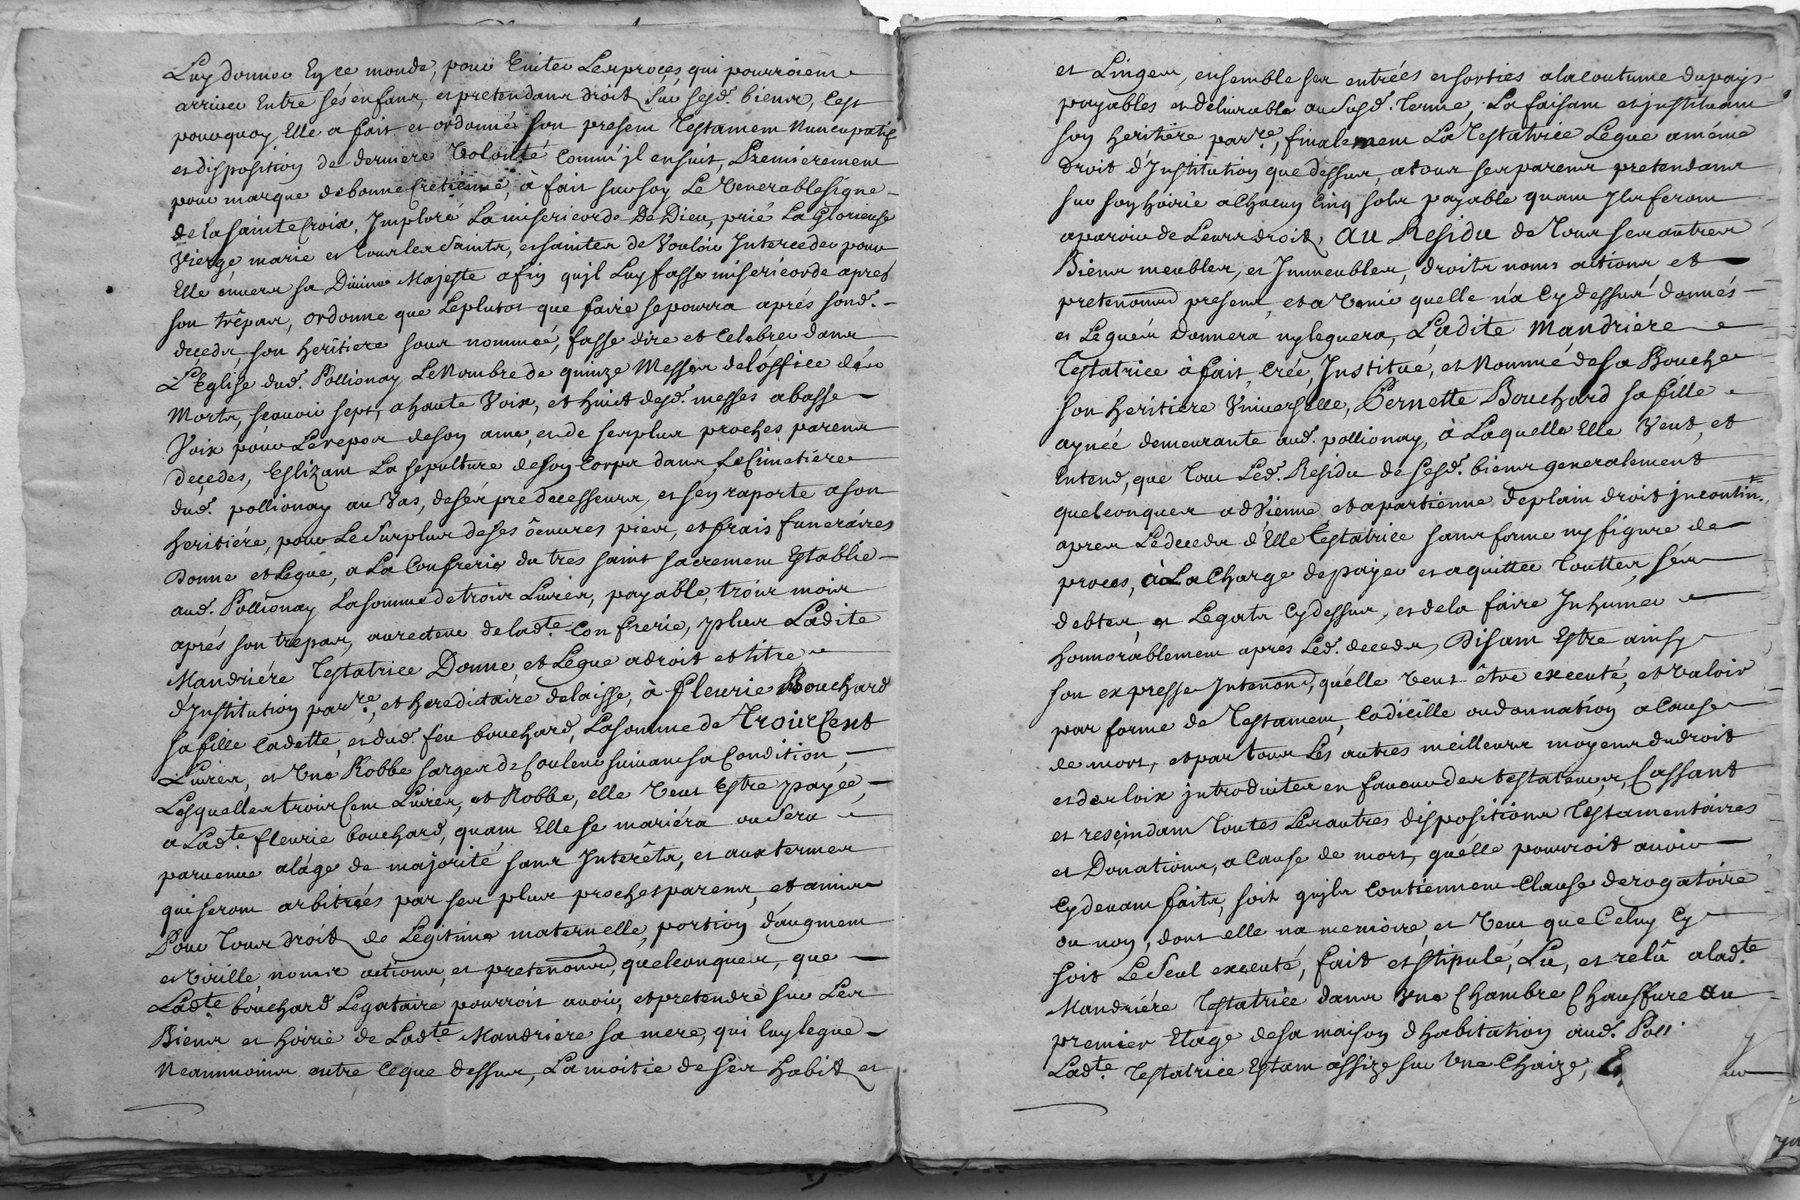 Luy donner En ce monde, pour Eviter Les proçes qui pourroient
arriver Entre sés enfans, et pretendans droit Sur sesd. biens, C'est
pourquoy, Elle a fait et ordonné son present Testament Nuncupatif
et disposition de derniere Volonté Comm'jl ensuit, Premiérement
pour marque de bonne Cretienne, à fait sur soy Le Venerable signe
de la sainte Croix, Imploré La misericorde De Dieu, prié La Glorieuse
Vierge marie et tous les saints, et saintes de Vouloir Interceder pour
Elle envers sa Divine Majeste afin qu'jl Luy fasse misericorde aprés
son trêpas, ordonne que Le plutot que faire se pourra aprés sond.
deçeds, son heritiere sous nommée, fasse dire et Celebrer dans
L'Eglise dud. Pollionay Le Nombre de quinze Messes de l'office des
Morts, sçavoir sept, a haute Voix, et huit desd. messes a basse
Voix pour Le repos de son ame, et de ses plus proches parens
deçedes, Eslizant La sepulture de son Corps dans Le Cimetiére
dud. pollionay au Vas, de sés predecesseurs, et s'en raporte a son
heritiére, pour Le surplus de ses ôeuvres pies, et frais funeraires
Donne et Legue, a La Confrerie du tres saint sacrement Establie
aud. Pollionay La somme de trois Livres, payable, trois mois
aprés son trepas, au recteur de lad.te Confrerie, plus Ladite
Mandriére Testatrice Donne, et Légue a droit et titre
d'Institution par.re, et hereditaire delaisse, à fleurie Bouchard
sa fille Cadette, et dud. feu bouchard, La somme de Trois Cent
Livres, et Une Robbe sarges de Couleur suivant sa Condition,
Lesquelles trois Cent Livres, et Robbe, elle Veut Estre payée,
a Lad.te fleurie bouchard, quant Elle se mariéra ou sera
parvenue a l'âge de majorité sans Interêts, et aux termes
qui seront arbitrés par ses plus proches parens, et amis
Pour tous droit de Legitime maternelle, portion d'augment
et Virille, noms actions, et pretentions, quelconques, que
Lad.te bouchard Legataire pourroit avoir, et pretendre sur Les
Biens et hoirie de Lad.te Mandriere sa mere, qui luy legue
Neanmoins outre Ce que dessus, La moitie de ses habit et
et Linges, ensemble ses entrées et sorties a la coutume du pays
payables et delivrable au susd. terme, La faisant et jnstituant
son heritiére par.re, finalement La Testatrice Légue a méme
droit d'Institution que dessus, a tous ses parens pretendans
sur son hoirie a Chacun Cinq sols payable quant Jls feront
aparoir de Leurs droit, au Residu de tous ses autres
Biens meubles, et Immeubles, droits noms actions et
pretentions presens, et a Venir quelle n'a Cy dessus donnés
et Legués Donnera ny leguera, Ladite Mandriére
Testatrice à fait, Créé, Institué, et Nommé de sa Bouche
son heritiere Vniverselle, Pernette Bouchard sa fille
aynée demeurante aud. pollionay, à Laquelle Elle Veut, et
Entend, que tout Led. Residu de sesd. biens generalement
quelconques advienne et apartienne de plain droit jncontin.t
apres Le deceds d'Elle Testatrice sans forme ny figure de
proces, à La Charge de payer et aquitter toutes sés
debtes, et Legats Cy dessus, et de la faire Inhumer
honnorablement aprés Led. deceds, Disant Estre ainsy
son expresse Intention, qu'elle Veut être executé, et Valoir
par forme de Testament, Codicille ou donnation a Cause
de mort, et par tous Les autres meilleurs moyens du droit
et des loix jntroduites en faveur des testateurs, Cassant
et resçindant toutes Les autres dispositions Testamentaires
et Donations, a Cause de mort, qu'elle pourroit avoir
Cy devant faits, soit qu'jls Contiennent Clause derogatoire
ou non, dont elle n'a memoire, et Veut que Celuy Cy
soit Le seul executé, fait et stipulé, Lu, et relû a lad.te
Mandriére Testatrice dans Une Chambre Chauffure au
premier Etage de sa maison d'habitation aud. Poll
Lad.te Testatrice Estant assize sur Une Chaize,